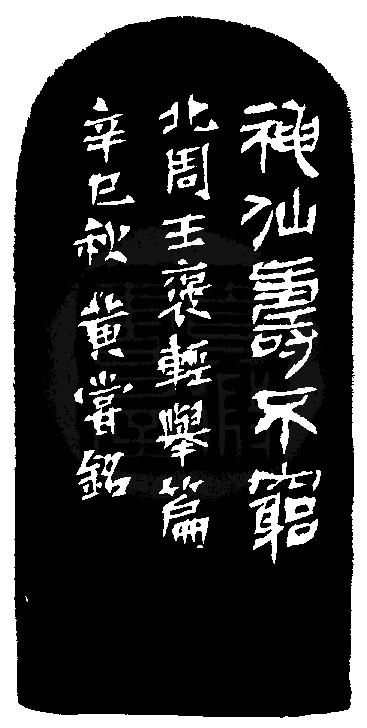 神仙壽不窮
北周王褒輕舉篇
辛巳秋黄嘗銘